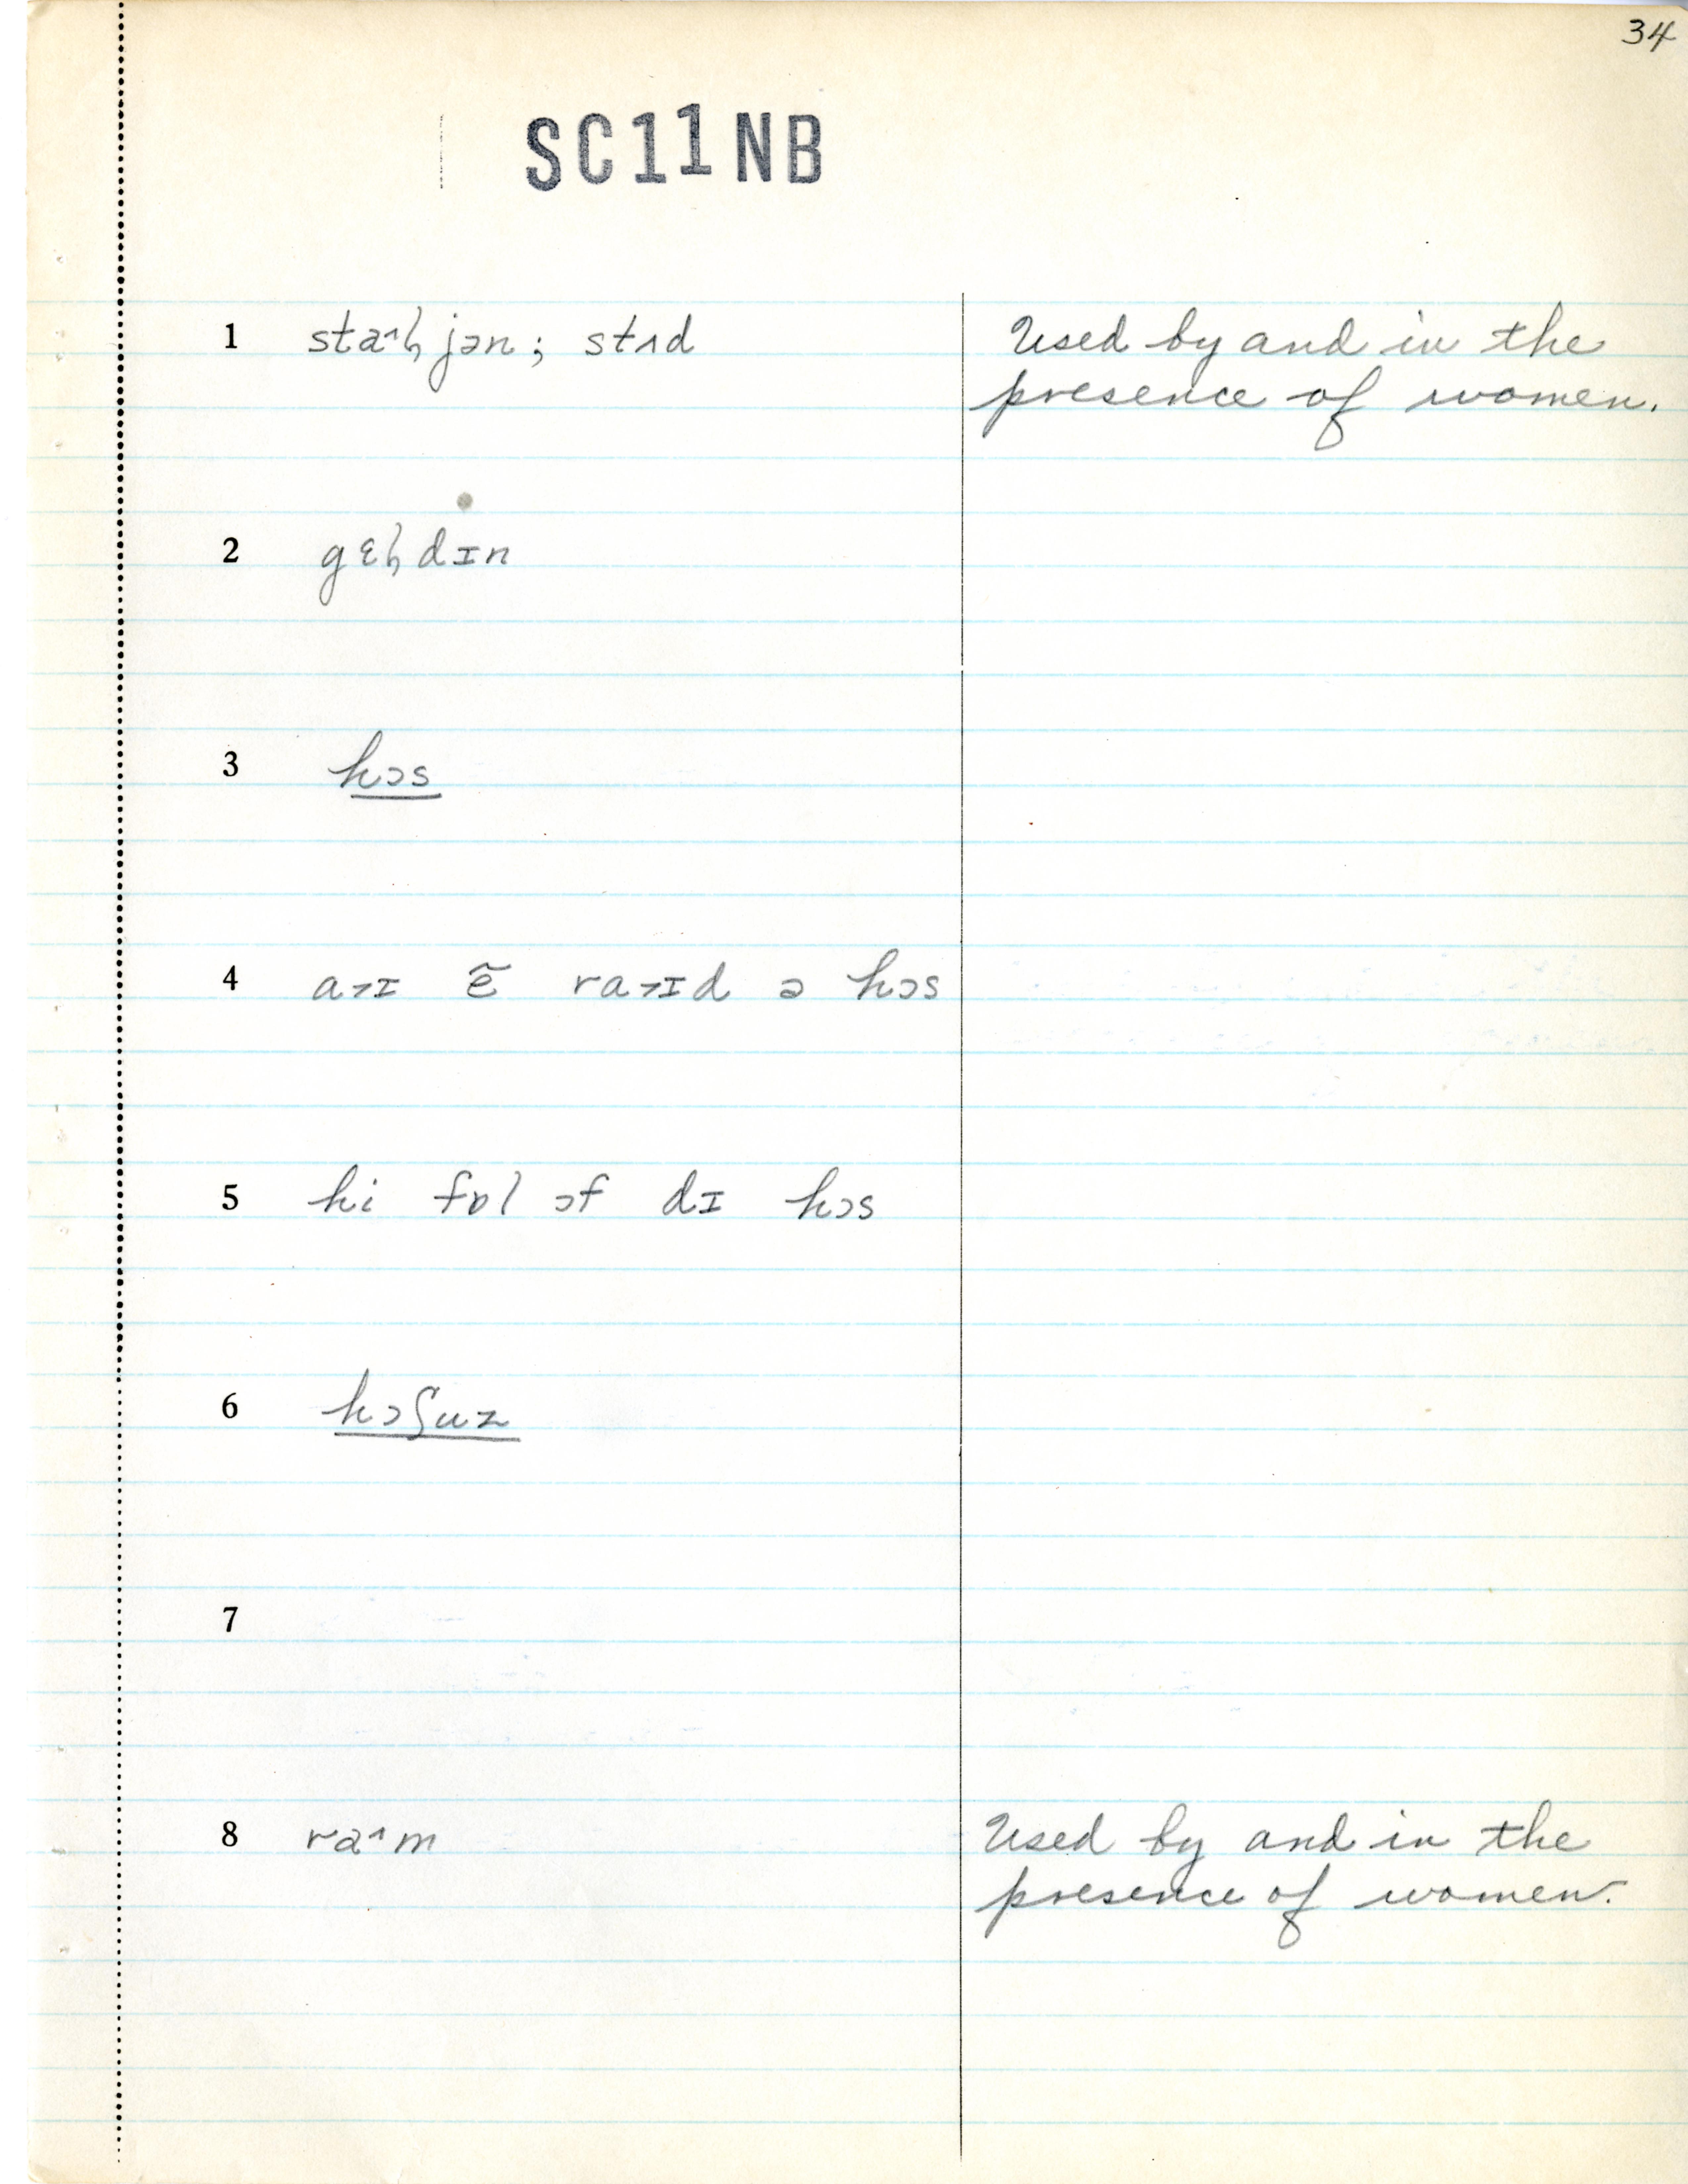 34
SC11NB
1 staꜛɦjən; stʌd Used by and in the
presence of women.
2 gɛɦdɪn
3 hɔs
4 a˃ɪ ẽ ra˃ɪd ə hɔs
5 hi fɒl ɔf dɪ hɔs
6 hɔʃuz
7
8 ra˄m Used by and in the
presence of women.